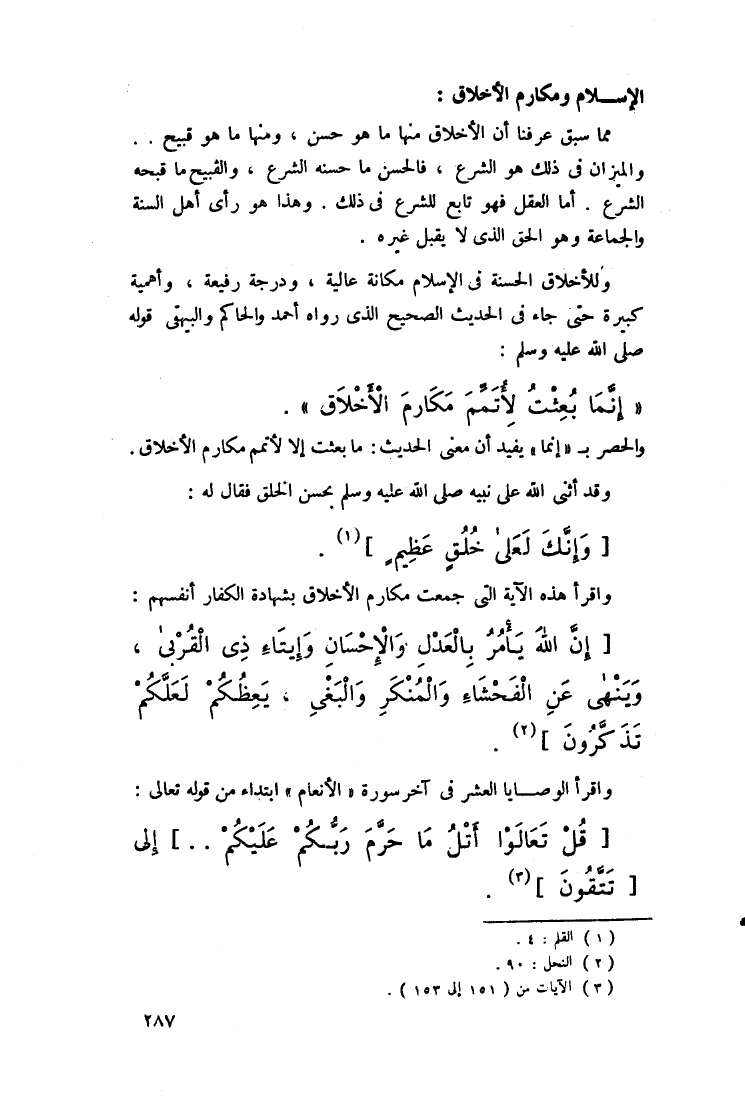 الإسلام ومكارم الأخلاق :
مما سبق عرفنا أن الأخلاق منها ما هو حسن ، ومنها ما هو قبيح . .
والميزان فى ذلك هو الشرع ، فالحسن ما حسنه الشرع ، والقبيح ما قبحه
الشرع . أما العقل فهو تابع للشرع فى ذلك . وهذا هو رأى أهل السنة
والجماعة وهو الحق الذى لا يقبل غيره .
وللأخلاق الحسنة فى الإسلام مكانة عالية ، ودرجة رفيعة ، وأهمية
كبيرة حتى جاء فى الحديث الصحيح الذى رواه أحمد والحاكم والبيهقى قوله
صلى الله عليه وسلم :
« إِنَّمَا بُعِثْتُ لِأُتَمِّمَ مَكَارِمَ الْأَخْلَاقِ » .
والحصر بـ « إنما » يفيد أن معنى الحديث : ما بعثت إلا لأتمم مكارم الأخلاق .
وقد أثنى الله على نبيه صلى الله عليه وسلم بحسن الخلق فقال له :
[ وَإِنَّكَ لَعَلَىٰ خُلُقٍ عَظِيمٍ ] (١) .
واقرأ هذه الآية التى جمعت مكارم الأخلاق بشهادة الكفار أنفسهم :
[ إِنَّ اللهَ يَأْمُرُ بِالْعَدْلِ وَالْإِحْسَانِ وَإِيتَاءِ ذِى الْقُرْبَىٰ ،
وَيَنْهَىٰ عَنِ الْفَحْشَاءِ وَالْمُنْكَرِ وَالْبَغْىِ ، يَعِظُكُمْ لَعَلَّكُمْ
تَذَكَّرُونَ ] (٢) .
واقرأ الوصايا العشر فى آخر سورة « الأنعام » ابتداء من قوله تعالى :
[ قُلْ تَعَالَوْا أَتْلُ مَا حَرَّمَ رَبُّكُمْ عَلَيْكُمْ . . ] إلى
[ تَتَّقُونَ ] (٣) .
( ١ ) القلم : ٤ .
( ٢ ) النحل : ٩٠ .
( ٣ ) الآيات من ( ١٥١ إلى ١٥٣ ) .
٢٨٧